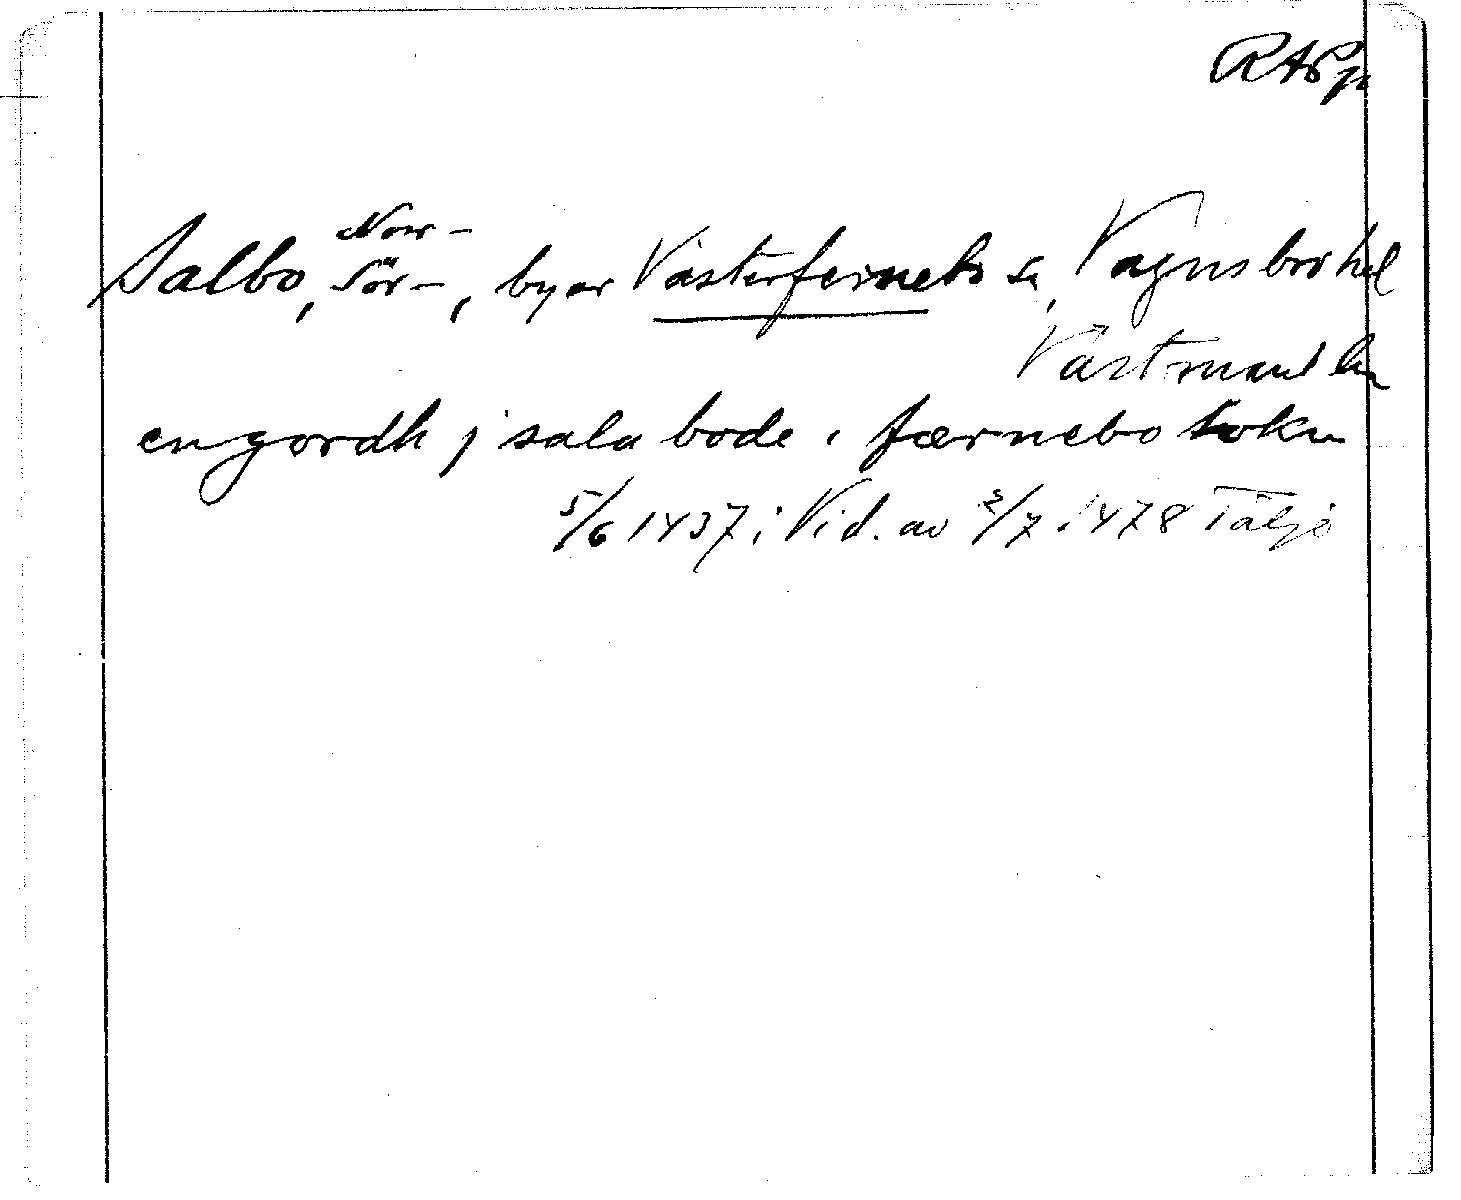 RAPp
Norr-
Salbo, Sör-, byar Västerfernebo sn, Vagnsbro hd
Västmanl. län
en gordh j sala bode i færnebo sokn
5/6 1437 i Vid. av 2/7 1478 Tälje